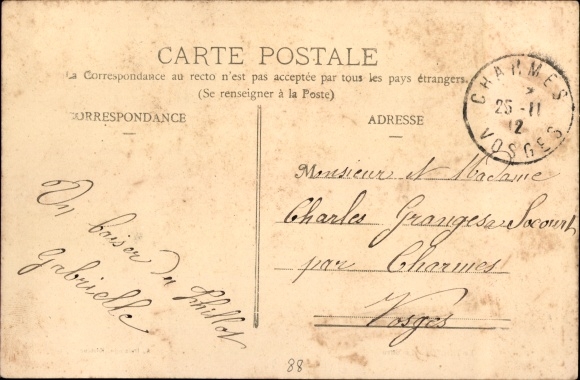 CARTE POSTALE
La Correspondance au recto n'est pas acceptée par tous les pays étrangers.
(Se renseigner à la Poste)
CORRESPONDANCE
ADRESSE
CHARMES
25 -11
12
VOSGES
Un baiser du
Gabrielle
Monsieur et Madame
Charles Granges à Socourt
par Charmes
Vosges
88